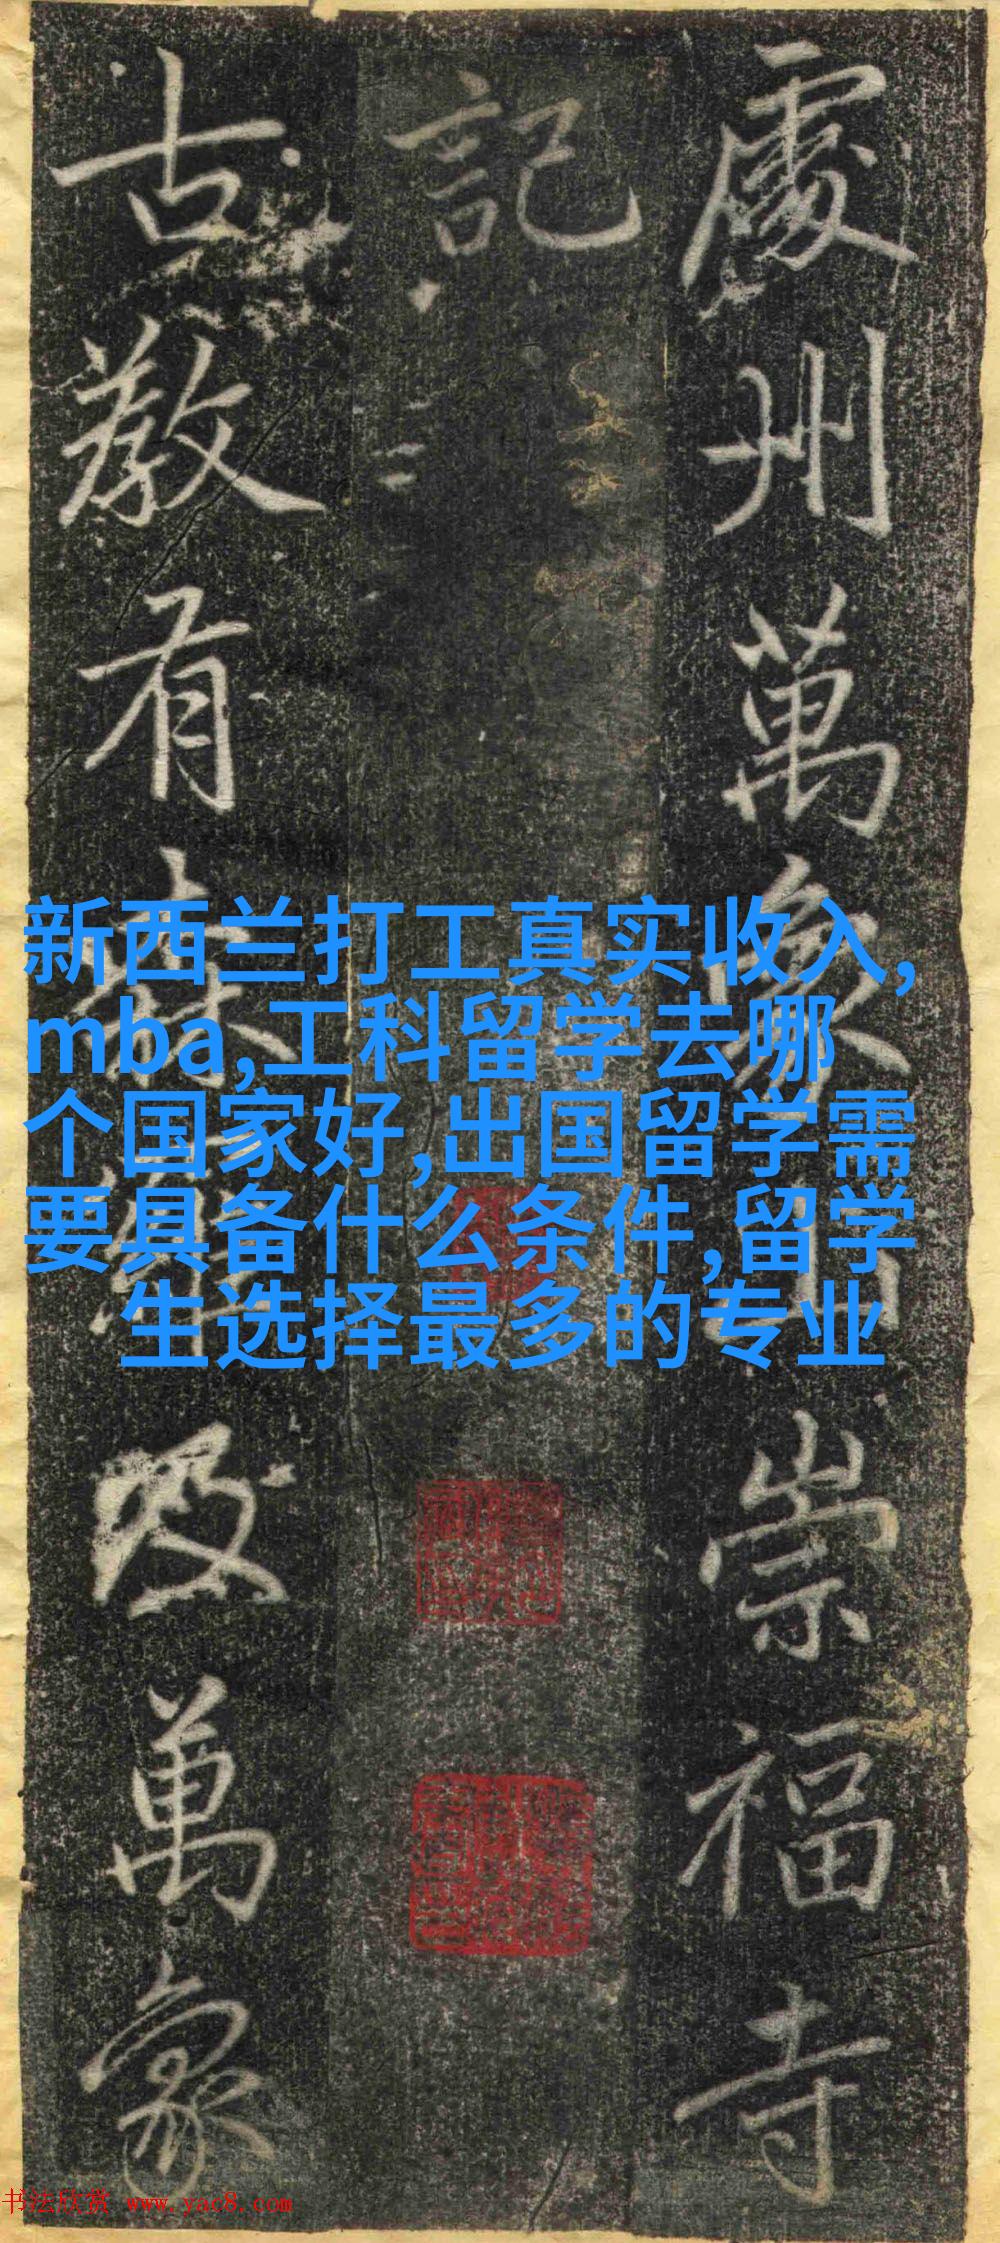 處州萬象山崇福寺
記
古教有森羅及萬象
新西兰打工真实收入,
mba,工科留学去哪
个国家好,出国留学需
要具备什么条件,留学
生选择最多的专业
书法欣赏 www.yac8.com